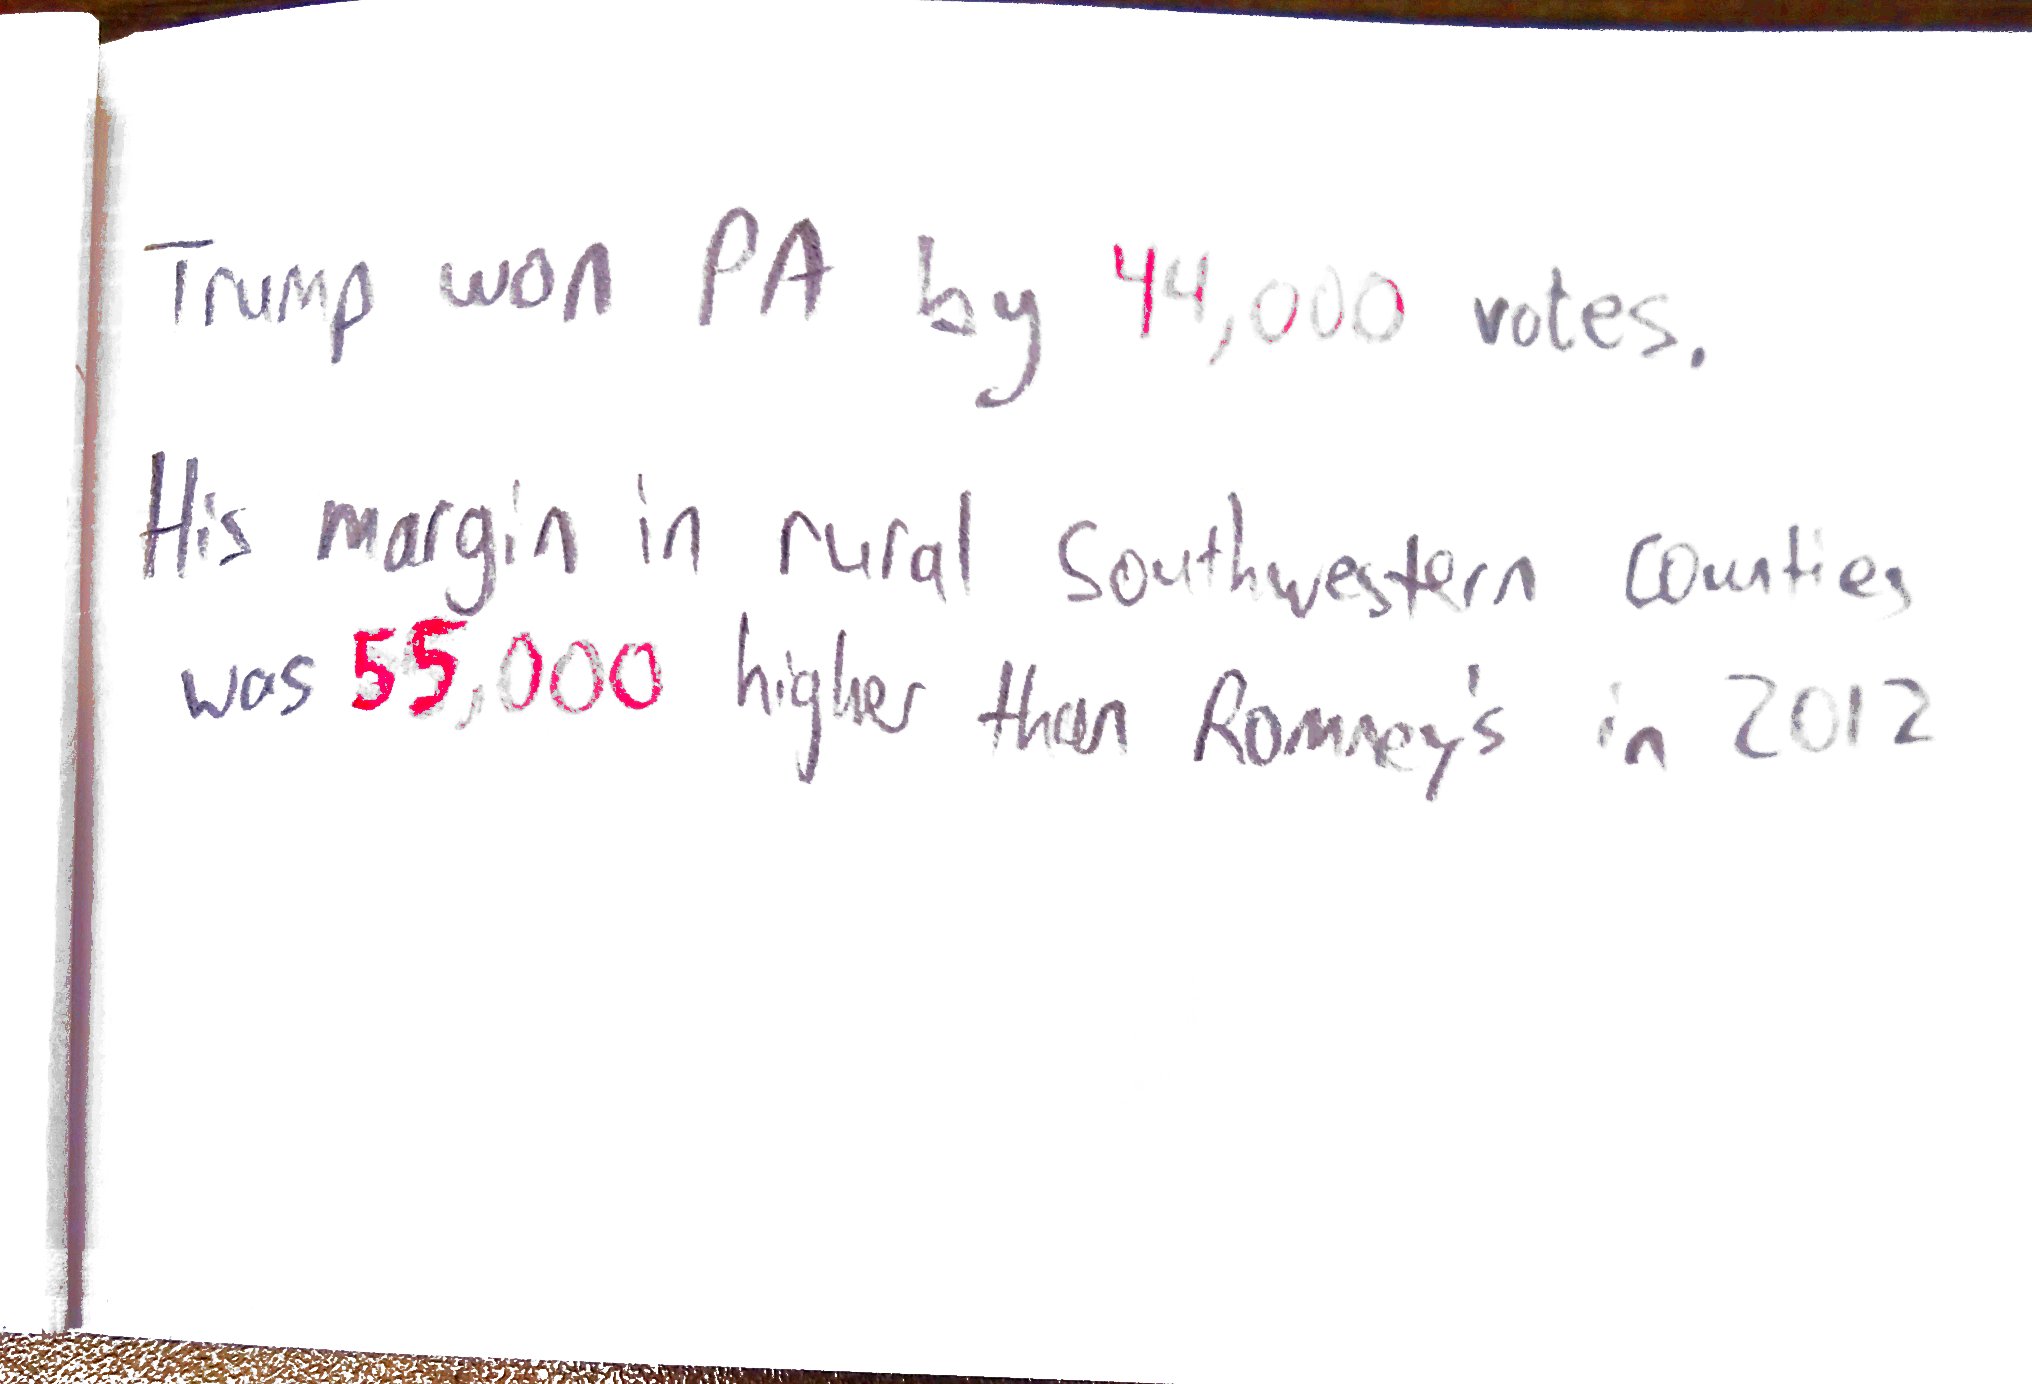 Trump won PA by 44,000 votes.
His margin in rural Southwestern counties
was 55,000 higher than Romney's in 2012